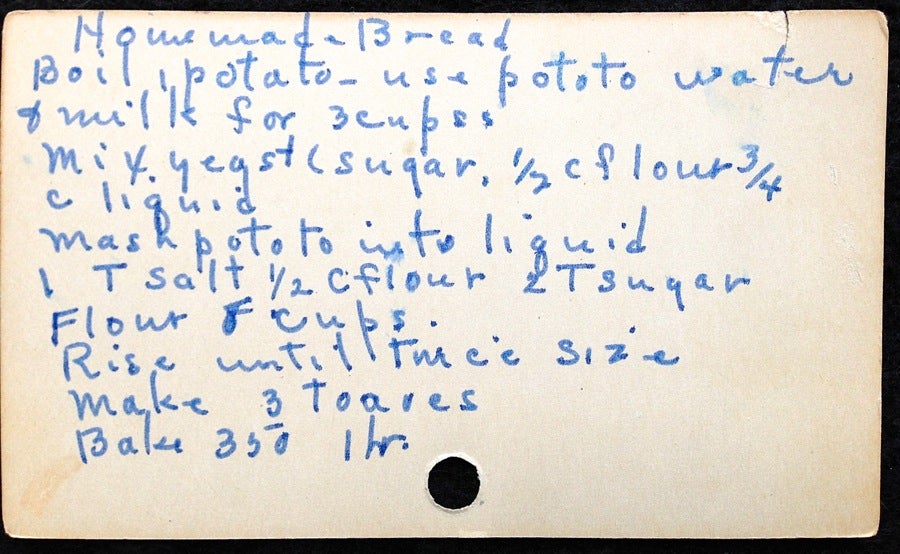 Homemade Bread
Boil 1 potato - use pototo water
& milk for 3 cupss
Mix yeast ( sugar, 1/2 c flour 3/4
c liquid
Mash pototo into liquid
1 T salt 1/2 c flour 2 T sugar
Flour 8 cups.
Rise until twice size
Make 3 loaves
Bake 350 1 hr.